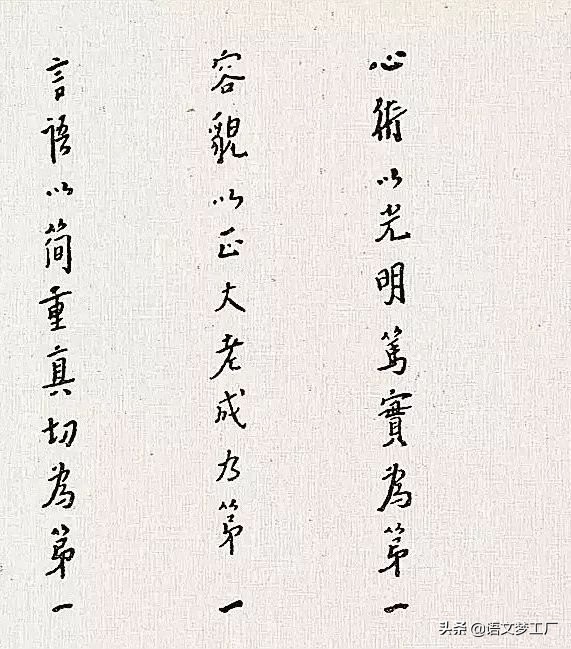 心術以光明篤實為第一
容貌以正大老成为第一
言語以简重真切為第一
头条 @语文梦工厂